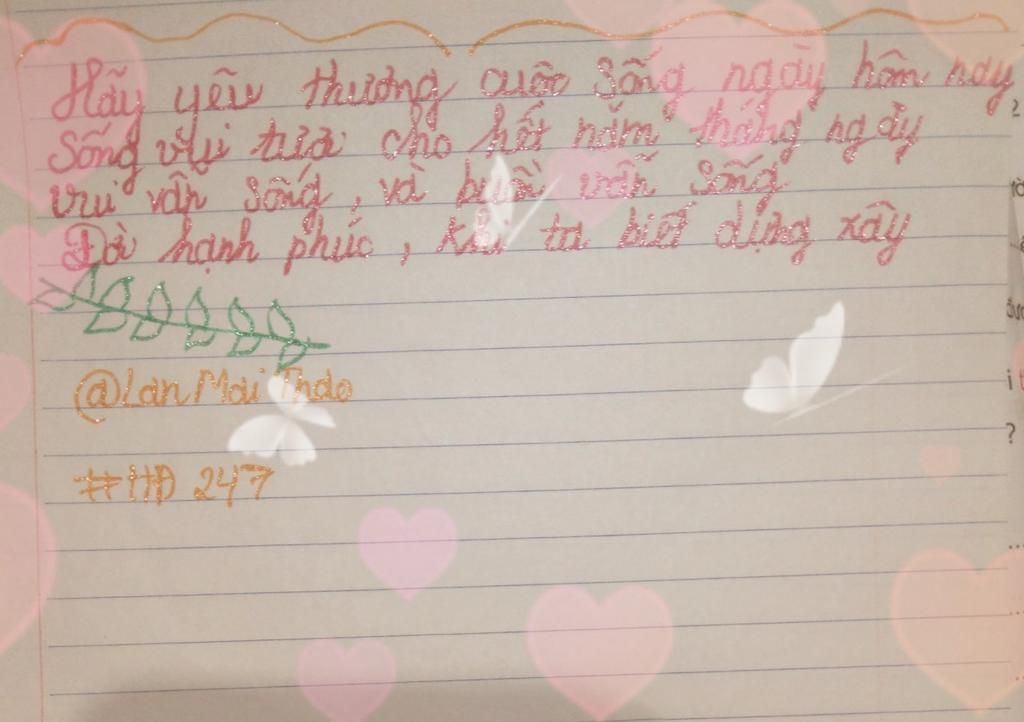 Hãy yêu thương cuộc sống ngày hôm nay
Sống vui tươi cho hết năm tháng ngày
vui vẫn sống, và buồn vẫn sống
Đời hạnh phúc, khi ta biết dựng xây
@Lan Mai Thảo
#HD 247
?